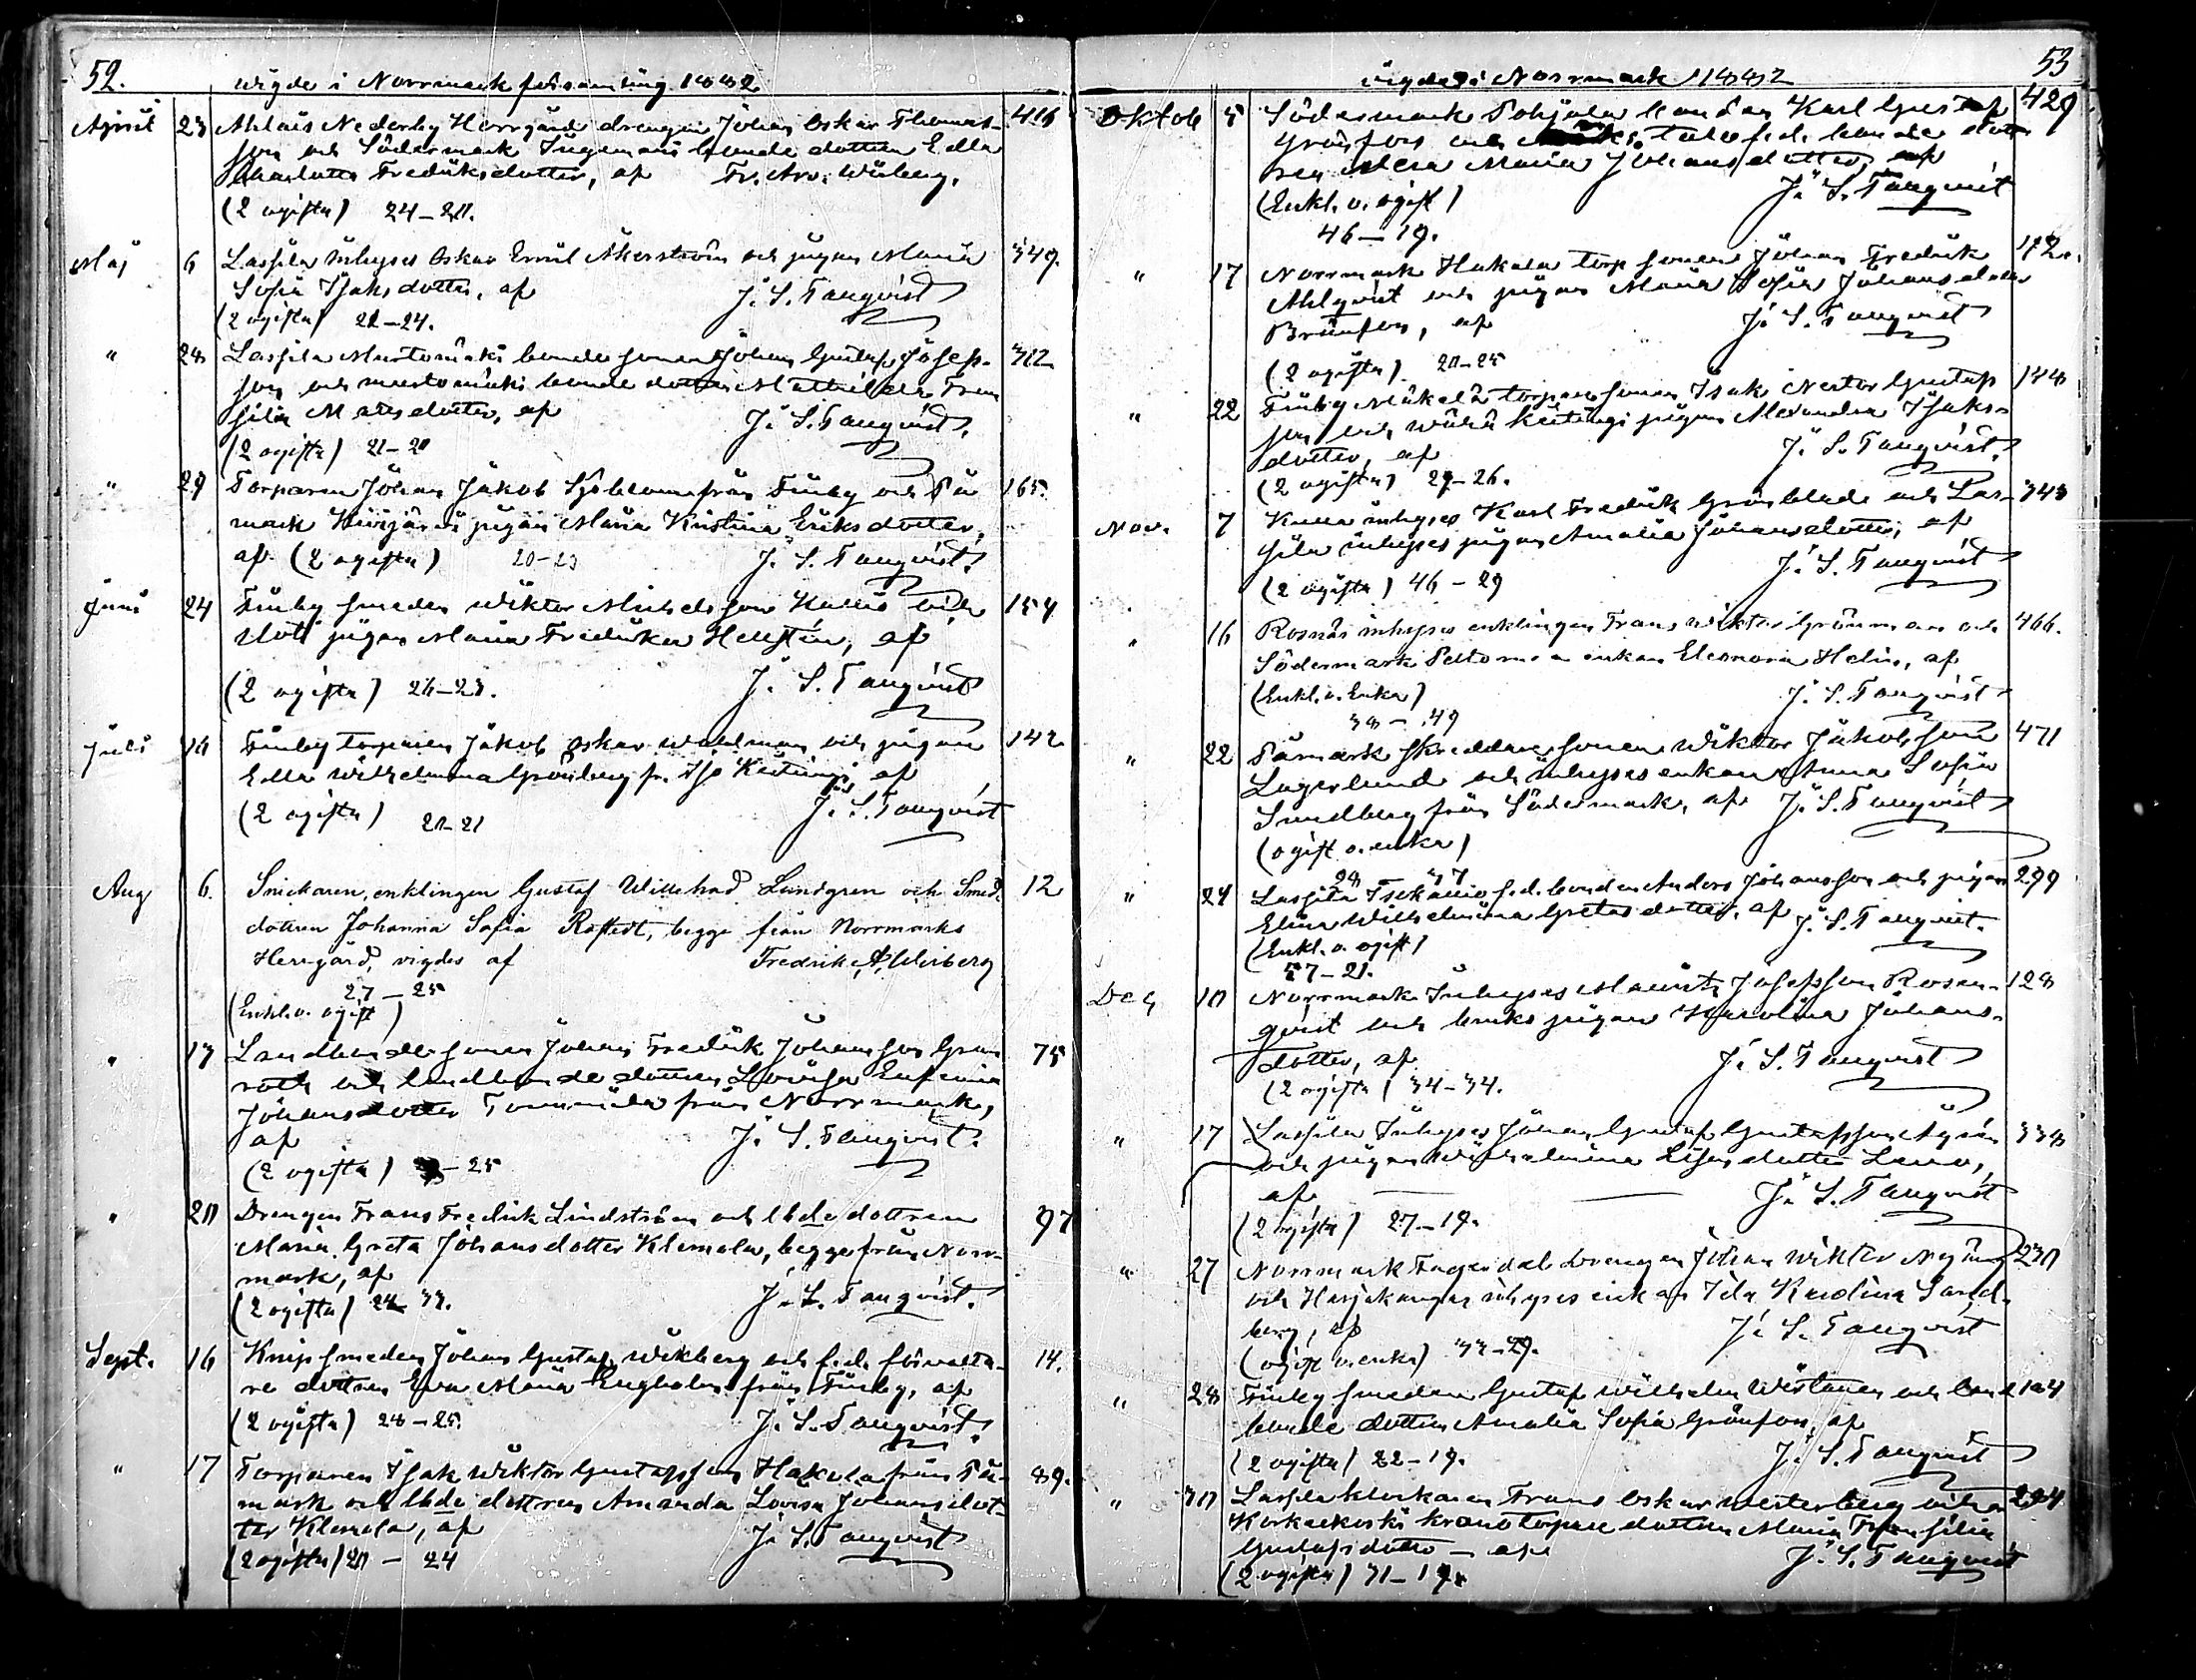 52.
wigde i Norrmark församling 1882
April 23 Ahlais Nederby Herrgård drengen Johan Oskar Thomas- 416
son och Södermark Ingemans bonde dottren Edla
Charlotta Fredriksdotter, af Fr. Arv. Wiberg.
(2 ogifta) 24–20.
Maj 6 Lassila inhyses Oskar Emil Åkerström och pigan Maria 349.
Sofia Isaksdotter, af J. S. Tanqvist
(2 ogifta) 22–24.
" 28 Lassila Mustomäki bonde sonen Johan Gustaf Josefs- 312
son och mustomäki bonde dottren Mathilda Fran
silia Matsdotter, af J. S. Tanqvist.
(2 ogifta) 21–20
" 29 Torparen Johan Jakob Sjöblom från Finby och På 165.
mark Kivijärvi pigan Maria Kristina Eriksdotter,
af (2 ogifta) 20–23 J. S. Tanqvist.
Juni 24 Finby smeden Wiktor Michelsson Kallio och 154
pigan Maria Fredrika Hellstén, af
(2 ogifta) 26–23. J. S. Tanqvist
Juli 16 Finby torparen Jakob Oskar Wahlman och pigan 142
Edla Wilhelmina Grönberg fr. Iso Keitüngi af
(2 ogifta) 21–21 J. S. Tanqvist
Aug 6. Snickaren, enklingen Gustaf Willehad Lundgren och Smed. 12
dottren Johanna Sofia Rostedt, begge från Norrmarks
Herrgård, vigdes af Fredrik A. Wiberg
27–25
(Enkl. o. ogift)
" 13 Landbonde sonen Johan Fredrik Johansson Gran 75
roth och landbonde dottren Lovisa Eufemia
Johansdotter Tommila från Norrmark,
af J. S. Tanqvist.
(2 ogifta) –25
" 20 Drengen Frans Fredrik Lindström och lbde dottren 97
Maria Greta Johansdotter Klemola, begge från Norr-
mark, af
(2 ogifta) 24–33. J. S. Tanqvist.
Sept. 16 Knipsmeden Johan Gustaf Wikberg och f.d. förvalta- 14.
re dottren Eva Maria Engholm från Finby, af
(2 ogifta) 28–25. J. S. Tanqvist.
" 17 Torparen Isak Wiktor Gustafsson Hakola från På- 89.
mark och lbde dottren Amanda Lovisa Johansdot-
ter Klemola, af J. S. Tanqvist
(2 ogifta) 20–24
53
vigde i Norrmark 1882
Oktob 5 Södermark Pohjala bonden Karl Gustaf 429
Grönfors och f.d. bonde dott
ren Maria Johansdotter, af
(Enkl. o. ogift) J. S. Tanqvist
46–19.
" 17 Norrmark Hakala torp sonen Johan Fredrik 112.
Ahlqvist och pigan Maria Sofia Johansdotter
Brunfors, af J. S. Tanqvist
(2 ogifta) 20–25
" 22 Finby Mäkelä torpare sonen Isak Nestor Gustafs 148
son och wähä Keitüngi pigan Alexandra Isaks-
dotter, af J. S. Tanqvist.
(2 ogifta) 29–26.
Nov. 7 inhyses Karl Fredrik Grönblad och Las- 343
sila inhyses pigan Amalia Johansdotter, af
(2 ogifta) 46–29 J. S. Tanqvist
" 16 Rosnäs inhyses enklingen Frans Wiktor Grönman och 466.
Södermark Peltomaa enkan Eleonora Helin, af
(Enkl. o. Enka) J. S. Tanqvist
38–49
" 22 Påmark skräddare sonen Wiktor Jakobsson 471
Lagerlund och inhyses enkan Anna Sofia
Sundberg från Södermark, af J. S. Tanqvist
(ogift o. enka)
28–37
" 24 Lassila f.d. bonden Anders Johansson och pigan 299
Elina Wilhelmina Gretasdotter, af J. S. Tanqvist.
(Enkl. o. ogift)
57–21.
Dec 10 Norrmark Inhyses Mauritz Josefsson Rosen- 128
qvist och bruks pigan Karolina Johans-
dotter, af J. S. Tanqvist
(2 ogifta) 34–34.
" 17 Lassila Inhyses Johan Gustaf Gustafsson Ågrén 338
och pigan Wilhelmina Lisasdotter Leino,
af J. S. Tanqvist
(2 ogifta) 27–19.
" 27 Norrmark Fagerdal drengen Johan Wiktor Nyång 230
och Harjakangas inhyses enkan Ida Karolina Sand-
berg, af J. S. Tanqvist
(ogift o. enka) 32–29.
" 28 Finby smeden Gustaf Wilhelm Westanen och land 124
bonde dottren Amalia Sofia Grönfors, af
(2 ogifta) 22–19. J. S. Tanqvist
" 30 Lassila klockaren Frans Oskar Westerberg och 294
Korkeakoski kronotorpare dottren Maria Fransilia
Gustafsdotter – af J. S. Tanqvist
(2 ogifta) 31–19